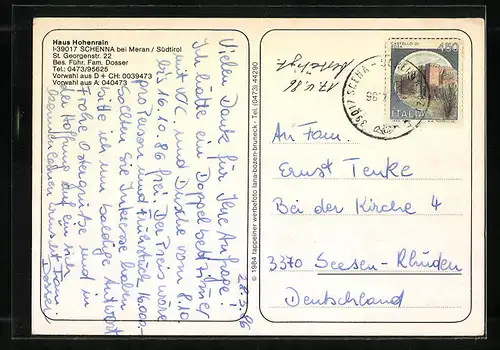 Haus Hohenrain
I-39017 SCHENNA bei Meran / Südtirol
St. Georgenstr. 22
Bes. Führ. Fam. Dosser
Tel.: 0473/95625
Vorwahl aus D + CH 0039473
Vorwahl aus A: 040473
28.3.86
Vielen Dank für Ihre Anfrage!
Ich hätte ein Doppelbettzimmer
mit WC. und Dusche vom 8.10.
bis 16.10.86 frei. Der Preis wäre
pro Person und Frühstück
Sollten Sie Interesse haben
bitte ich um baldige Antwort
Frohe Ostergrüße und in
der Hoffnung auf ein sich
Fam.
Dosser
© 1984 tappeiner werbefoto lana-bozen-bruneck - Tel. (0473) 44290
17.4.86
bestätigt
CASTELLO DI
450
ITALIA
39017 SCENA - SCHENNA
An Fam.
Ernst Tenke
Bei der Kirche 4
3370 Seesen-Rhüden
Deutschland